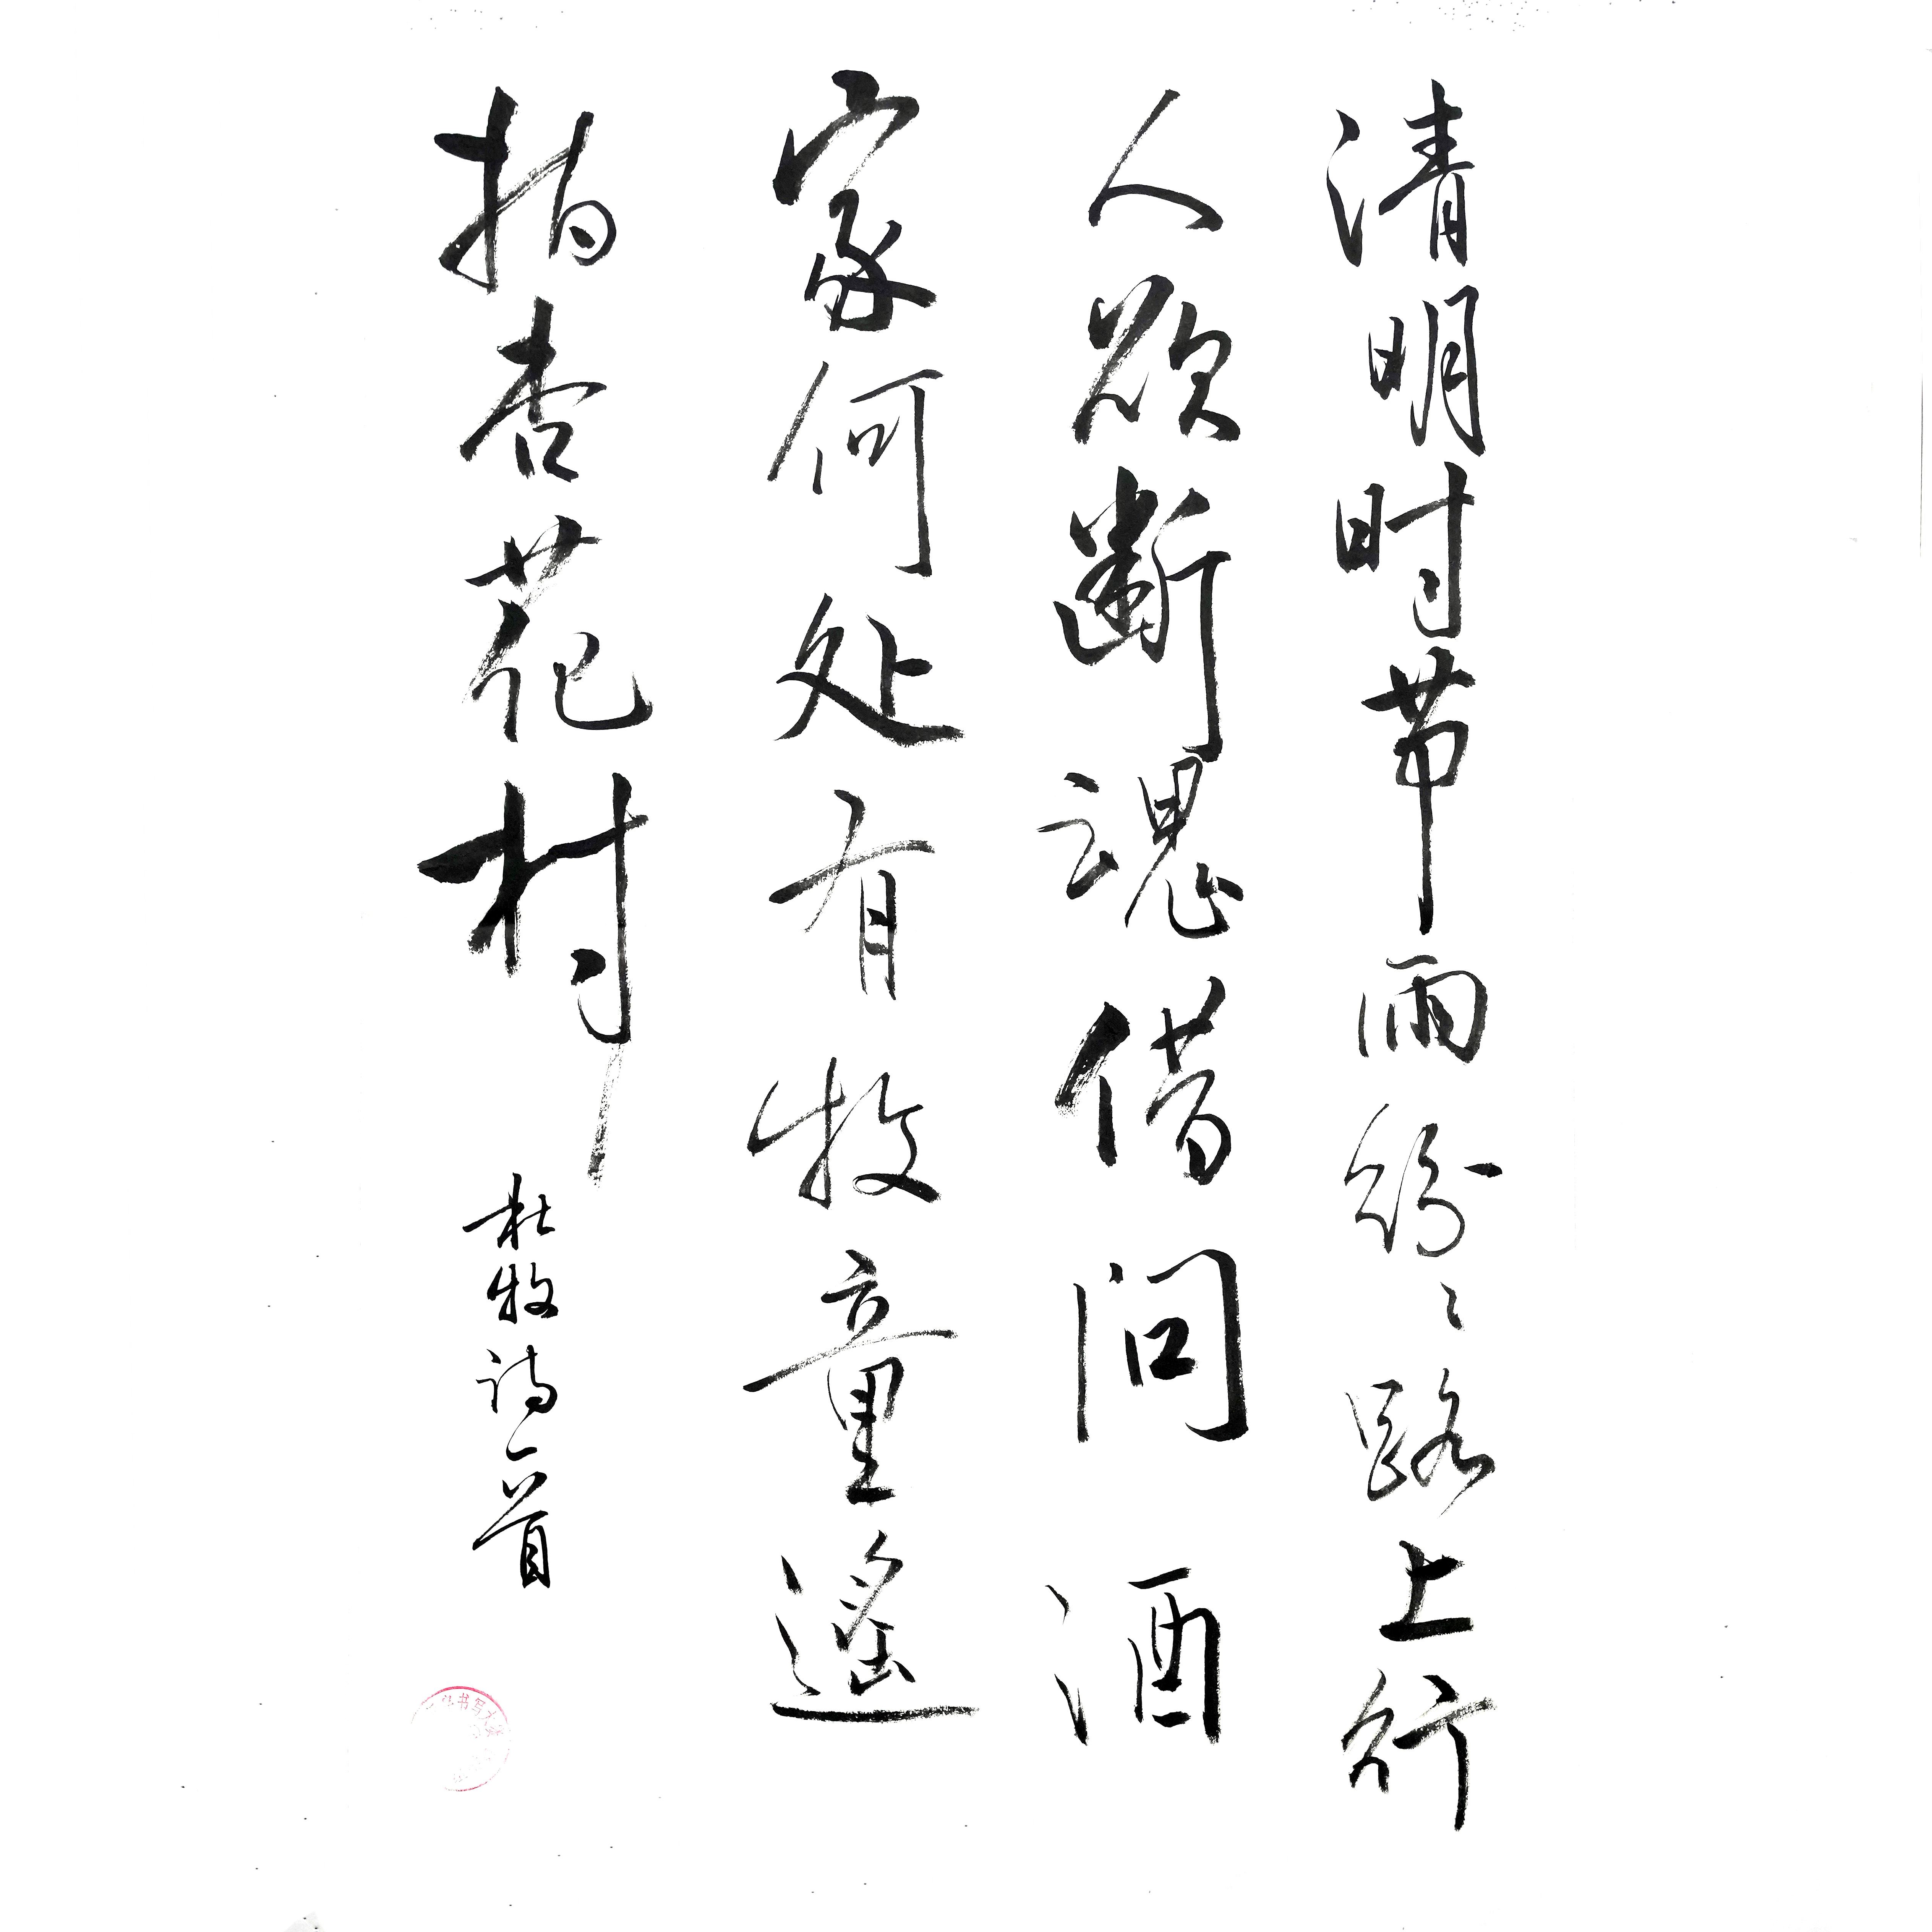 清明时节雨纷〻路上行
人欲断魂借问酒
家何处有牧童遥
指杏花村
杜牧诗一首
书写大